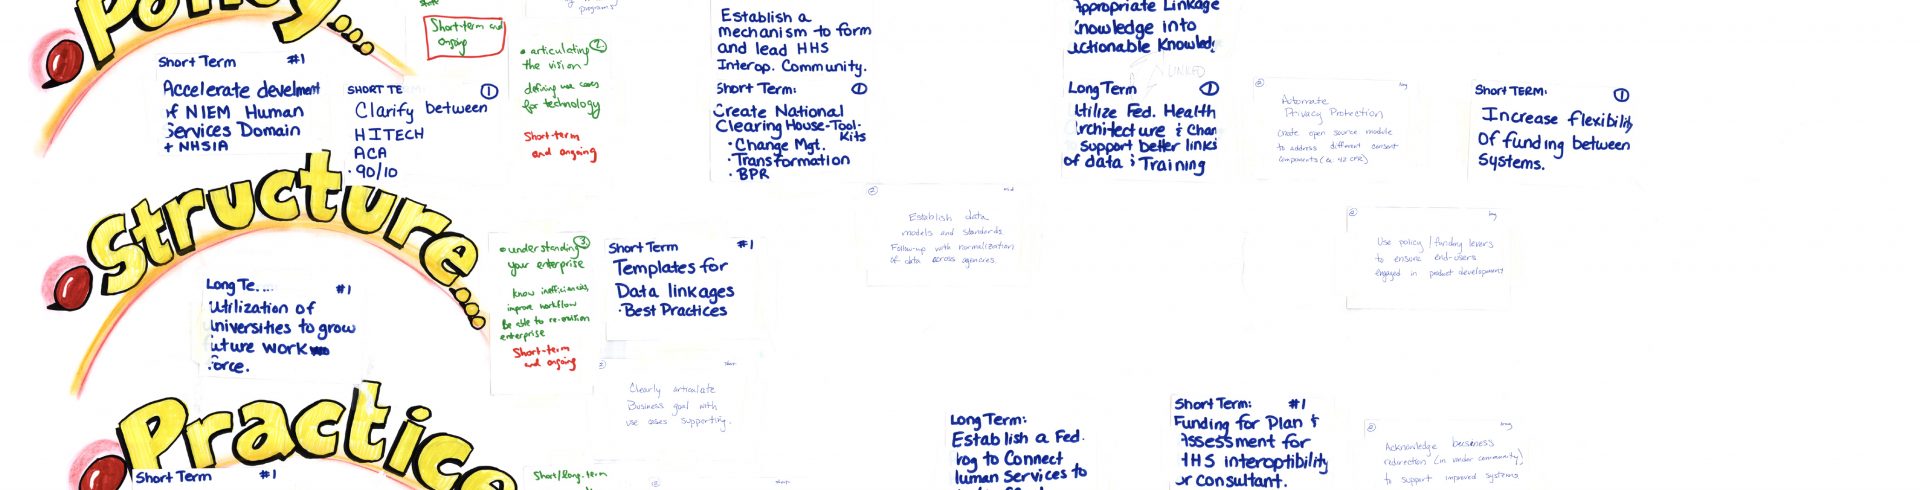 Policy...
Short Term #1
Accelerate develment
of NIEM Human
Services Domain
+ NHSIA
Short-term and
ongoing
SHORT TE
1
Clarify between
HITECH
ACA
· 90/10
• articulating 2
the vision
defining use cases
for technology
Short-term
and ongoing
programs)
Establish a
mechanism to form
and lead HHS
Interop. Community.
Short Term: 1
Create National
Clearing House-Tool-
Kits
· Change Mgt.
· Transformation
· BPR
Appropriate Linkage
Knowledge into
Actionable Knowled
LINKED
Long Term 1
Utilize Fed. Health
Architecture & Chan
Support better links
of data & Training
2 long
Automate
Privacy Protection
Create open source module
to address different consent
components (ex. 42 CFR)
Short TERM: 1
Increase flexibility
Of funding between
Systems.
Structure...
Long Te....
#1
Utilization of
Universities to grow
future work
force.
• understanding 3
your enterprise
know inefficiencies,
improve workflow
Be able to re-envision
enterprise
Short-term
and ongoing
Short Term #1
Templates for
Data linkages
· Best Practices
2 mid
Establish data
models and standards.
Follow-up with normalization
of data across agencies.
2 long
Use policy / funding levers
to ensure end-users
engaged in product development
3 short
Clearly articulate
Business goal with
use cases supporting.
Practice
Short Term #1
Short/Long-term
Long Term:
Establish a Fed.
rog to Connect
Human Services to
Short Term: #1
Funding for Plan &
Assessment for
HHS interoptibility
or consultant.
2 long
Acknowledge business
redirection (in vendor community)
to support improved systems